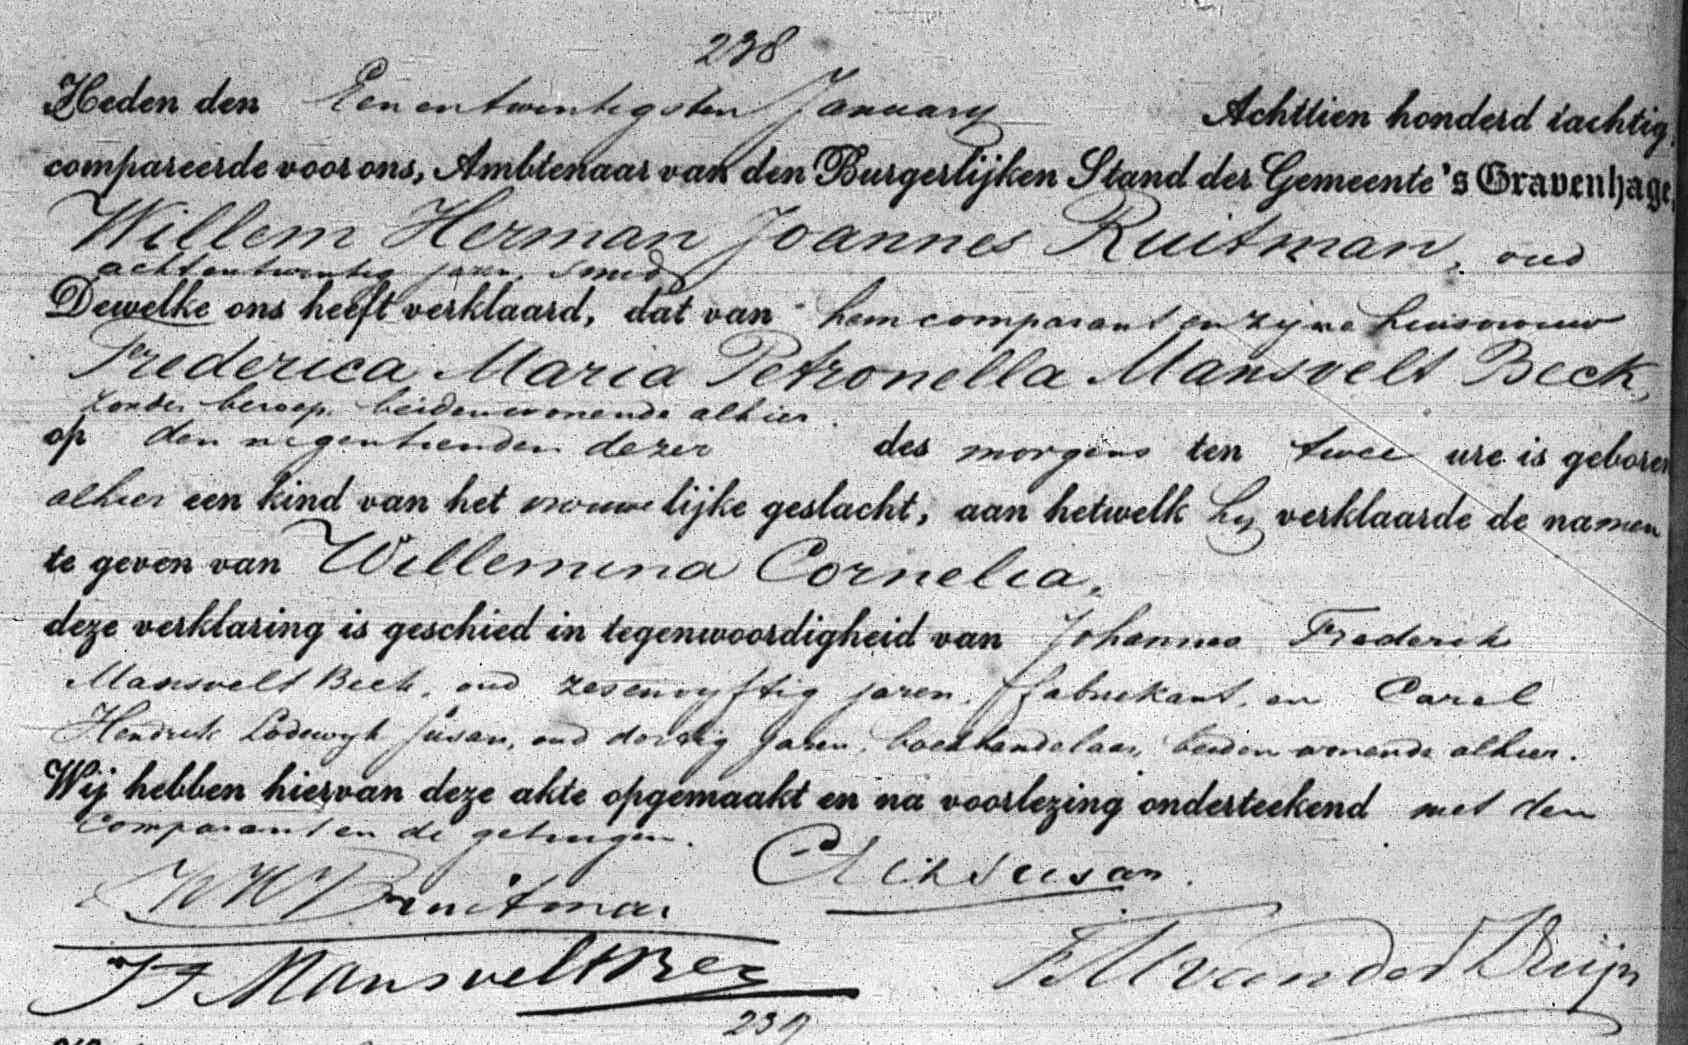 238
Heden den Eenentwintigsten January Achttien honderd tachtig,
compareerde voor ons, Ambtenaar van den Burgerlijken Stand der Gemeente 's Gravenhage,
Willem Herman Joannes Ruitman, oud
achtentwintig jaren, smid
Dewelke ons heeft verklaard, dat van hem comparant en zyne huisvrouw
Frederica Maria Petronella Mansvelt Beck,
zonder beroep, beiden wonende alhier.
op den negentienden dezer des morgens ten twee ure is geboren
alhier een kind van het vrouwelijke geslacht, aan hetwelk hy verklaarde de namen
te geven van Willemina Cornelia,
deze verklaring is geschied in tegenwoordigheid van Johannes Frederik
Mansvelt Beck, oud zesenvyftig jaren, fabriekant, en Carel
Hendrik Lodewyk Susan, oud dertig jaren, boekhandelaar, beiden wonende alhier.
Wij hebben hiervan deze akte opgemaakt en na voorlezing onderteekend met den
comparant en de getuigen.
Susan.
Ruitman
JF Mansvelt Bec
van der Kruijn
239